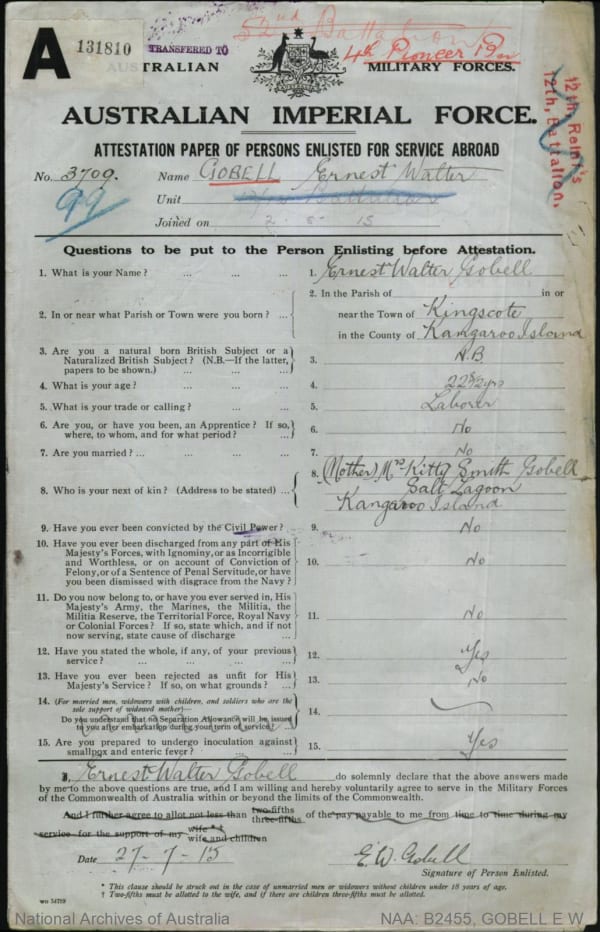 A
131810
TRANSFERED TO
52nd Battalion
4th Pioneer Bn
AUSTRALIAN MILITARY FORCES.
12th Reint's
12th, Battalion,
AUSTRALIAN IMPERIAL FORCE.
ATTESTATION PAPER OF PERSONS ENLISTED FOR SERVICE ABROAD
No. 3709. Name GOBELL Ernest Walter
99
Unit Battalion
Joined on 2-8-15
Questions to be put to the Person Enlisting before Attestation.
1. What is your Name? ... ... ... 1. Ernest Walter Gobell
2. In or near what Parish or Town were you born? ... 2. In the Parish of in or
near the Town of Kingscote
in the County of Kangaroo Island
3. Are you a natural born British Subject or a
Naturalized British Subject? (N.B.—If the latter,
papers to be shown.) ... ... 3. N.B
4. What is your age? ... ... ... 4. 22 5/12 yrs
5. What is your trade or calling? ... ... 5. Laborer
6. Are you, or have you been, an Apprentice? If so,
where, to whom, and for what period? ... 6. No
7. Are you married? ... ... ... ... 7. No
8. Who is your next of kin? (Address to be stated) ... 8. (Mother) Mrs Kitty Smith Gobell
Salt Lagoon
Kangaroo Island
9. Have you ever been convicted by the Civil Power? 9. No
10. Have you ever been discharged from any part of His
Majesty's Forces, with Ignominy, or as Incorrigible
and Worthless, or on account of Conviction of
Felony, or of a Sentence of Penal Servitude, or have
you been dismissed with disgrace from the Navy? 10. No
11. Do you now belong to, or have you ever served in, His
Majesty's Army, the Marines, the Militia, the
Militia Reserve, the Territorial Force, Royal Navy
or Colonial Forces? If so, state which, and if not
now serving, state cause of discharge ... 11. No
12. Have you stated the whole, if any, of your previous
service? ... ... ... ... 12. Yes
13. Have you ever been rejected as unfit for His
Majesty's Service? If so, on what grounds? ... 13. No
14. (For married men, widowers with children, and soldiers who are the
sole support of widowed mother)—
Do you understand that no Separation Allowance will be issued
to you after embarkation during your term of service? 14.
15. Are you prepared to undergo inoculation against
smallpox and enteric fever? ... ... 15. Yes
I, Ernest Walter Gobell do solemnly declare that the above answers made
by me to the above questions are true, and I am willing and hereby voluntarily agree to serve in the Military Forces
of the Commonwealth of Australia within or beyond the limits of the Commonwealth.
And I further agree to allot not less than two-fifths three-fifths of the pay payable to me from time to time during my
service for the support of my wife * † wife and children
Date 27-7-15 E. W. Gobell
Signature of Person Enlisted.
* This clause should be struck out in the case of unmarried men or widowers without children under 18 years of age.
† Two-fifths must be allotted to the wife, and if there are children three-fifths must be allotted.
National Archives of Australia NAA: B2455, GOBELL E W